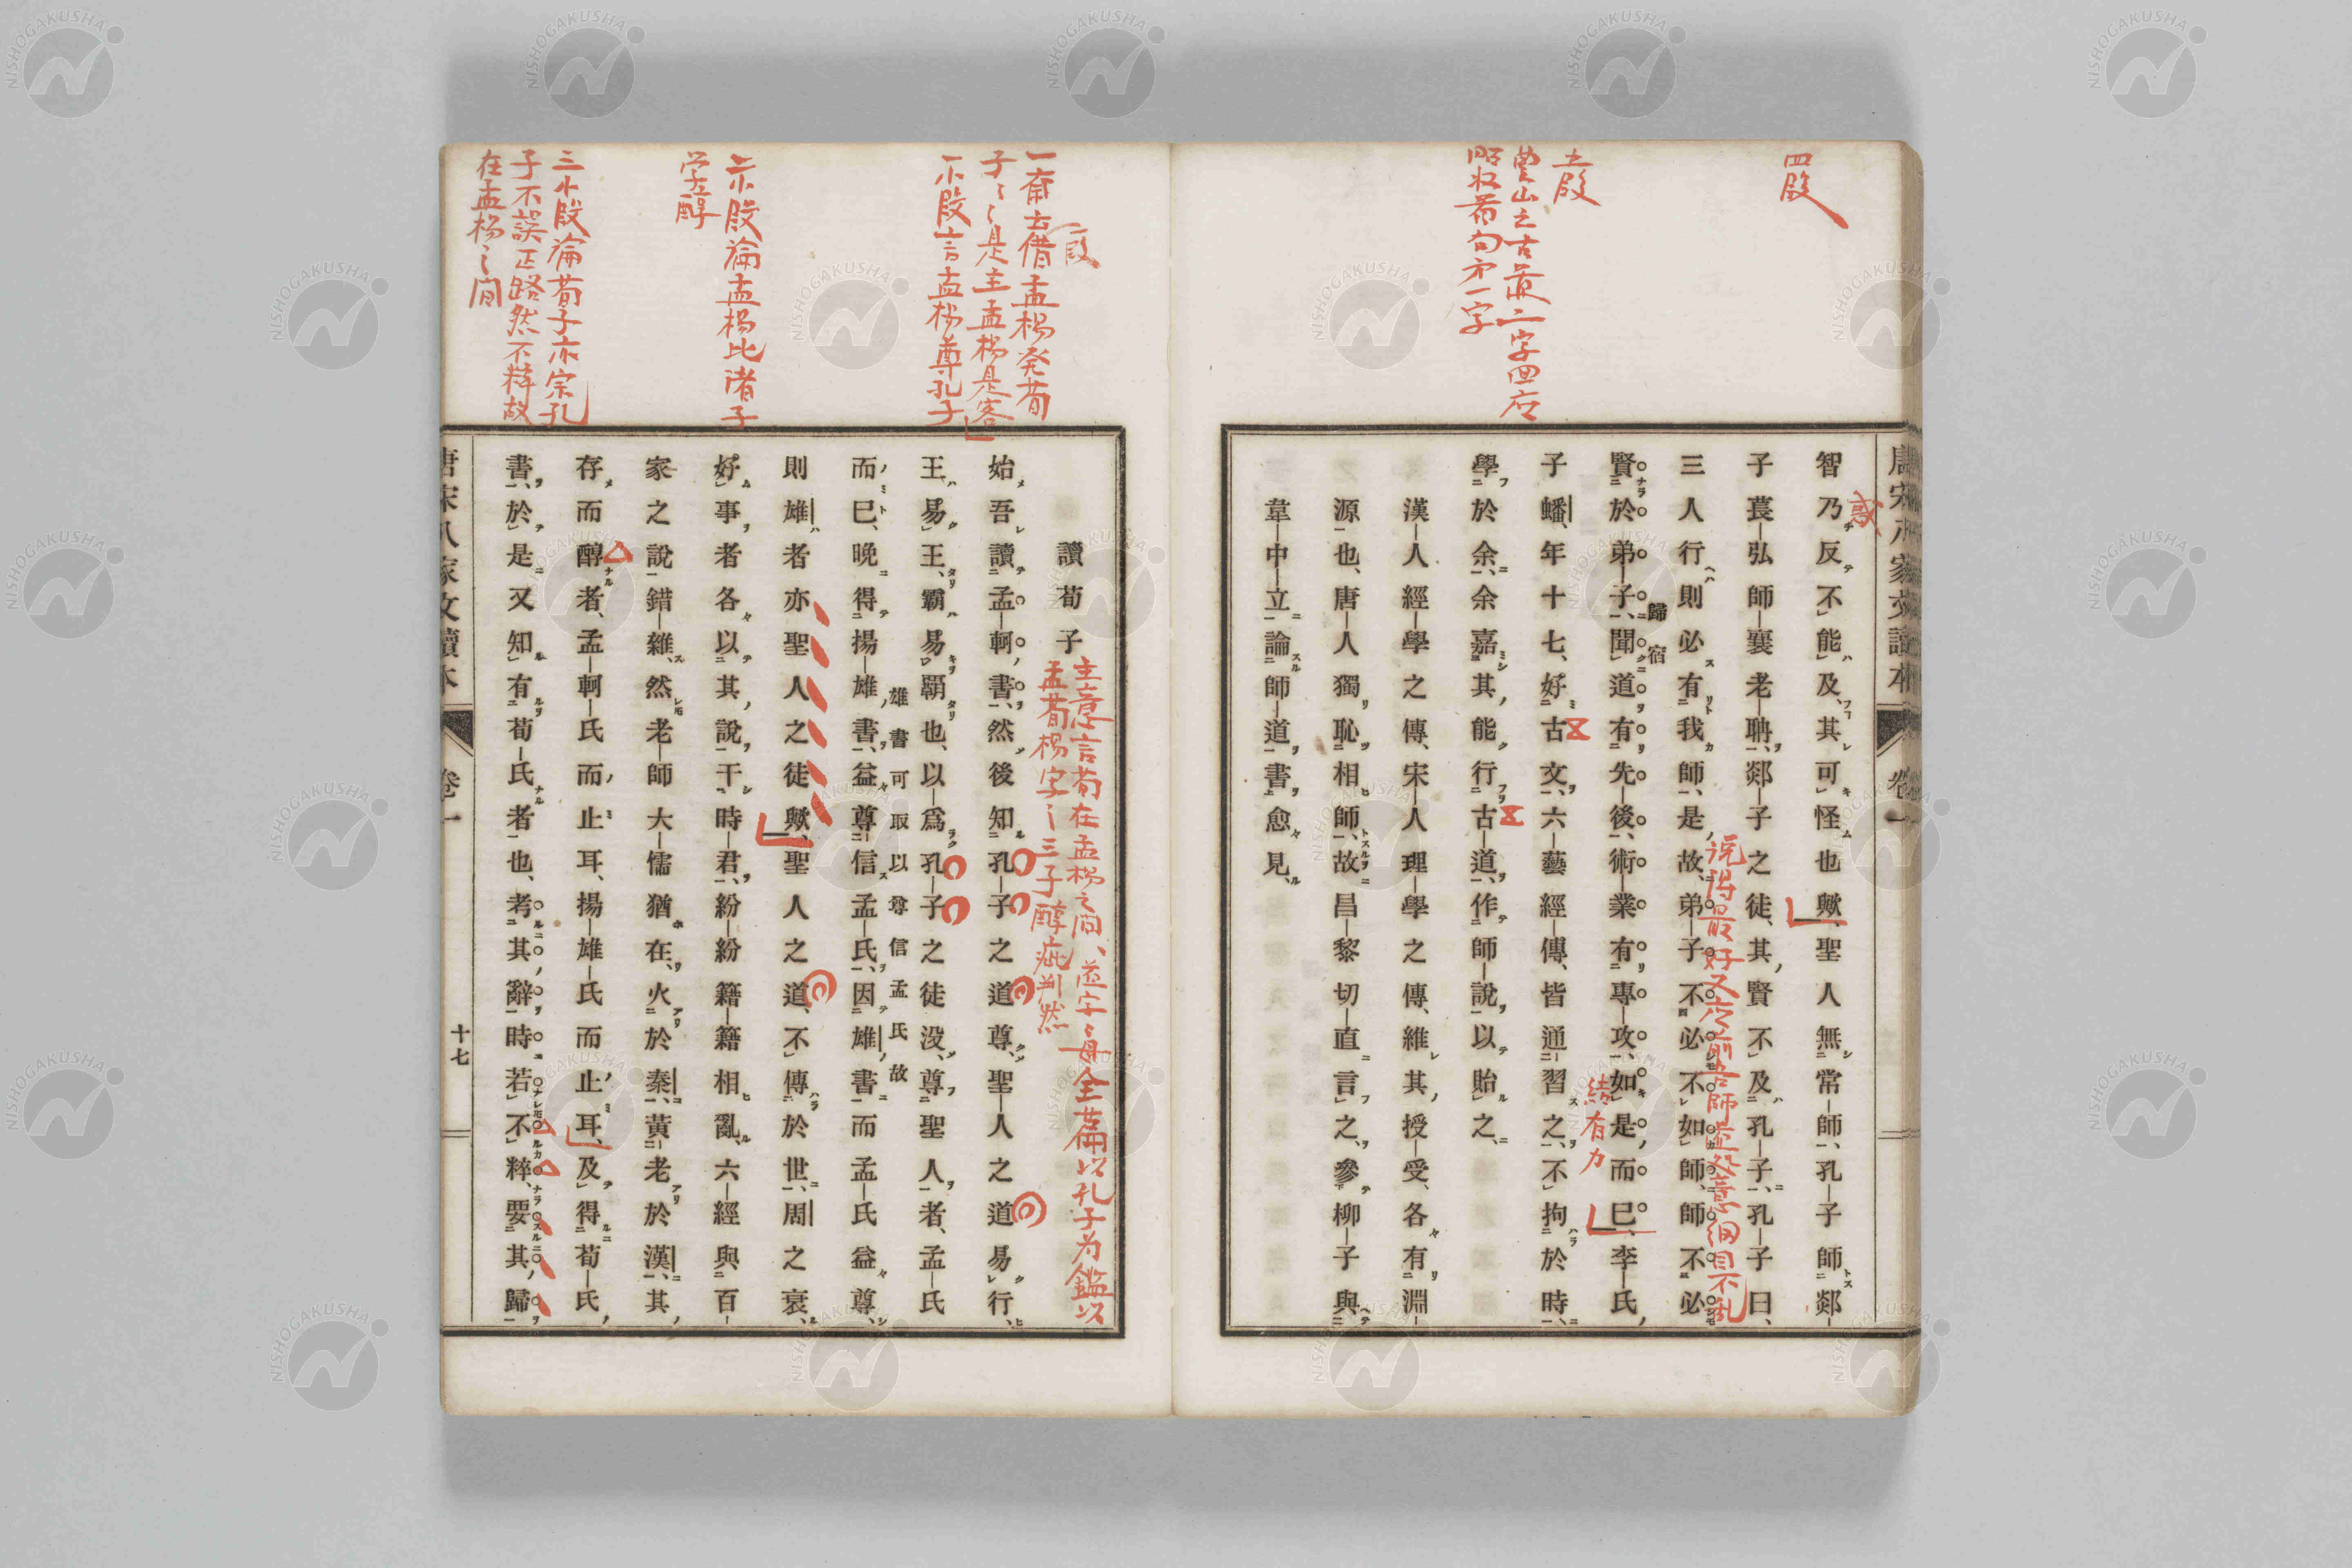 四段
五段
智乃反不能及其可怪也歟聖人無常師孔子師郯
子萇弘師襄老聃郯子之徒其賢不及孔子孔子曰
三人行則必有我師是故弟子不必不如師師不必
賢於弟子聞道有先後術業有專攻如是而已李氏
歸宿
結有力
子蟠年十七好古文六藝經傳皆通習之不拘於時
學於余余嘉其能行古道作師說以貽之
漢人經學之傳宋人理學之傳維其授受各有淵
源也唐人獨恥相師故昌黎切直言之參柳子與
韋中立論師道書愈見
讀荀子
主意言荀在孟楊之間
孟荀楊字
三子醇疵判然
全篇以孔子為鑑以
始吾讀孟軻書然後知孔子之道尊聖人之道易行
王易王霸易霸也以爲孔子之徒沒尊聖人者孟氏
而已晚得揚雄書益尊信孟氏因雄書而孟氏益尊
雄書可取以尊信孟氏故
則雄者亦聖人之徒歟聖人之道不傳於世周之衰
好事者各以其說干時君紛紛籍籍相亂六經與百
家之說錯雜然老師大儒猶在火於秦黃老於漢其
存而醇者孟軻氏而止耳揚雄氏而止耳及得荀氏
書於是又知有荀氏者也考其辭時若不粹要其歸
一段
子是主孟楊是客
小段言孟楊尊孔子
二小段論孟楊比諸子
学醇
三小段論荀子亦宗孔
子不誤正路然不粹故
在孟楊之間
唐宋八家文讀本
卷一
十七
NISHOGAKUSHA